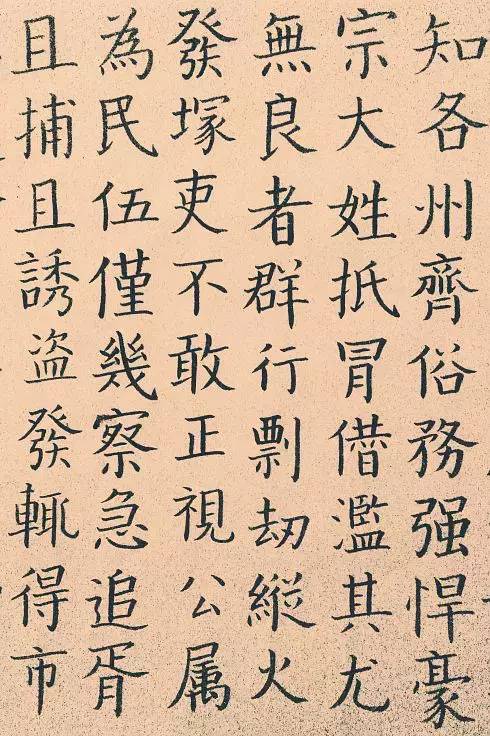 知各州齊俗務强悍豪
宗大姓抵冒僣濫其尤
無良者群行剽刼縱火
發塚吏不敢正視公属
為民伍僅幾察急追胥
且捕且誘盗發輒得市